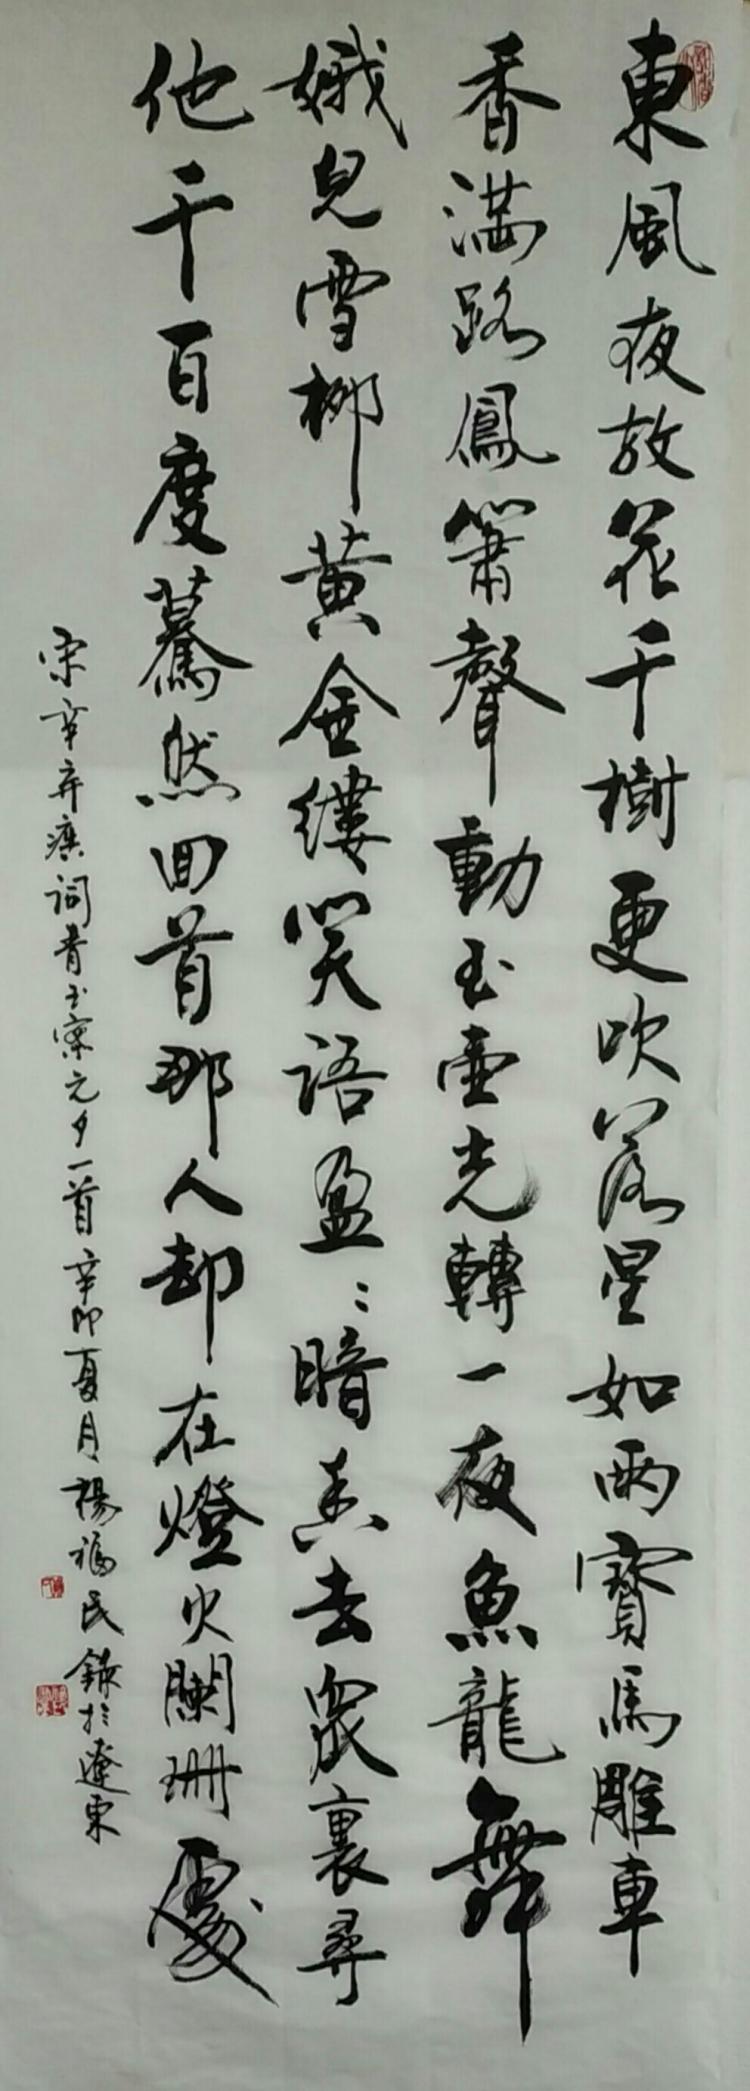 東風夜放花千樹更吹落星如雨寶馬雕車
香滿路鳳簫聲動玉壺光轉一夜魚龍舞
娥兒雪柳黃金縷笑語盈〻暗香去衆裏尋
他千百度驀然回首那人却在燈火闌珊處
宋辛弃疾詞青玉案元夕一首辛卯夏月楊福民錄於遼東